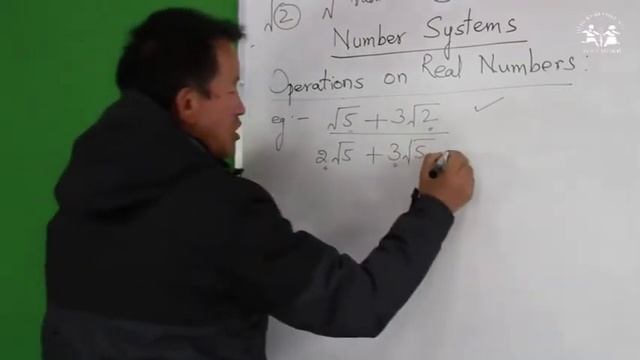 √2 √
Number Systems
Operations on Real Numbers :
eg:- √5 + 3√2 ✓
2√5 + 3√5